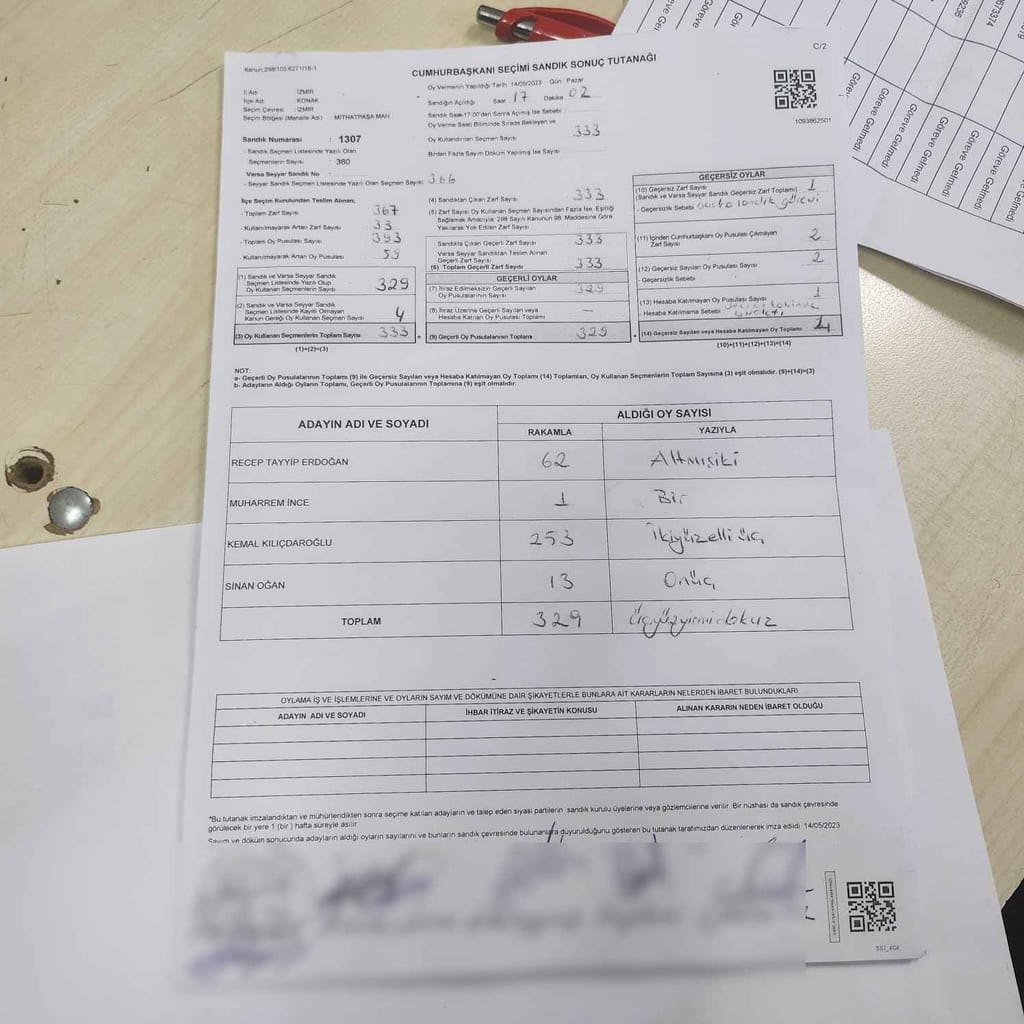 C/2
Kanun:298/105.6271/18-1
CUMHURBAŞKANI SEÇİMİ SANDIK SONUÇ TUTANAĞI
İl Adı : İZMİR
İlçe Adı : KONAK
Seçim Çevresi : İZMİR
Seçim Bölgesi (Mahalle Adı) : MİTHATPAŞA MAH.
Sandık Numarası : 1307
- Sandık Seçmen Listesinde Yazılı Olan
Seçmenlerin Sayısı : 360
Varsa Seyyar Sandık No :
- Seyyar Sandık Seçmen Listesinde Yazılı Olan Seçmen Sayısı: 366
Oy Vermenin Yapıldığı Tarih: 14/05/2023 Gün : Pazar
Sandığın Açıldığı Saat 17 Dakika 02
Sandık Saat 17:00'den Sonra Açılmış İse Sebebi
Oy Verme Saati Bitiminde Sırada Bekleyen ve
Oy Kullandırılan Seçmen Sayısı 333
Birden Fazla Sayım Döküm Yapılmış İse Sayısı
1093862501
İlçe Seçim Kurulundan Teslim Alınan;
- Toplam Zarf Sayısı 367
- Kullanılmayarak Artan Zarf Sayısı 33
- Toplam Oy Pusulası Sayısı 393
- Kullanılmayarak Artan Oy Pusulası 59
(1) Sandık ve Varsa Seyyar Sandık
Seçmen Listesinde Yazılı Olup
Oy Kullanan Seçmenlerin Sayısı 329
(2) Sandık ve Varsa Seyyar Sandık
Seçmen Listesinde Kayıtlı Olmayan
Kanun Gereği Oy Kullanan Seçmen Sayısı 4
(3) Oy Kullanan Seçmenlerin Toplam Sayısı 333
(1)+(2)=(3)
(4) Sandıktan Çıkan Zarf Sayısı 333
(5) Zarf Sayısı Oy Kullanan Seçmen Sayısından Fazla İse, Eşitliği
Sağlamak Amacıyla; 298 Sayılı Kanunun 98. Maddesine Göre
Yakılarak Yok Edilen Zarf Sayısı
Sandıkta Çıkan Geçerli Zarf Sayısı 333
Varsa Seyyar Sandıktan Teslim Alınan
Geçerli Zarf Sayısı
(6) Toplam Geçerli Zarf Sayısı 333
GEÇERLİ OYLAR
(7) İtiraz Edilmeksizin Geçerli Sayılan
Oy Pusulalarının Sayısı 329
(8) İtiraz Üzerine Geçerli Sayılan veya
Hesaba Katılan Oy Pusulası Toplamı —
(9) Geçerli Oy Pusulalarının Toplamı 329
GEÇERSİZ OYLAR
(10) Geçersiz Zarf Sayısı
(Sandık ve Varsa Seyyar Sandık Geçersiz Zarf Toplamı) 1
- Geçersizlik Sebebi başka sandık görevi
(11) İçinden Cumhurbaşkanı Oy Pusulası Çıkmayan
Zarf Sayısı 2
(12) Geçersiz Sayılan Oy Pusulası Sayısı 2
- Geçersizlik Sebebi
(13) Hesaba Katılmayan Oy Pusulası Sayısı 1
- Hesaba Katılmama Sebebi
(14) Geçersiz Sayılan veya Hesaba Katılmayan Oy Toplamı
(10)+(11)+(12)+(13)=(14)
NOT:
a- Geçerli Oy Pusulalarının Toplamı (9) ile Geçersiz Sayılan veya Hesaba Katılmayan Oy Toplamı (14) Toplamları, Oy Kullanan Seçmenlerin Toplam Sayısına (3) eşit olmalıdır. (9)+(14)=(3)
b- Adayların Aldığı Oyların Toplamı, Geçerli Oy Pusulalarının Toplamına (9) eşit olmalıdır.
ADAYIN ADI VE SOYADI ALDIĞI OY SAYISI
RAKAMLA YAZIYLA
RECEP TAYYİP ERDOĞAN 62 Altmışiki
MUHARREM İNCE 1 Bir
KEMAL KILIÇDAROĞLU 253 İkiyüzelliüç
SİNAN OĞAN 13 Onüç
TOPLAM 329 Üçyüzyirmidokuz
OYLAMA İŞ VE İŞLEMLERİNE VE OYLARIN SAYIM VE DÖKÜMÜNE DAİR ŞİKAYETLERLE BUNLARA AİT KARARLARIN NELERDEN İBARET BULUNDUKLARI
ADAYIN ADI VE SOYADI İHBAR İTİRAZ VE ŞİKAYETİN KONUSU ALINAN KARARIN NEDEN İBARET OLDUĞU
*Bu tutanak imzalandıktan ve mühürlendikten sonra seçime katılan adayların ve talep eden siyasi partilerin sandık kurulu üyelerine veya gözlemcilerine verilir. Bir nüshası da sandık çevresinde
görülecek bir yere 1 (bir) hafta süreyle asılır.
Sayım ve döküm sonucunda adayların aldığı oyların sayılarını ve bunların sandık çevresinde bulunanlara duyurulduğunu gösteren bu tutanak tarafımızdan düzenlenerek imza edildi. 14/05/2023
Göreve Gelmedi
Göreve Gelmedi
Göreve Gelmedi
Göreve Gelmedi
Göreve Gelmedi